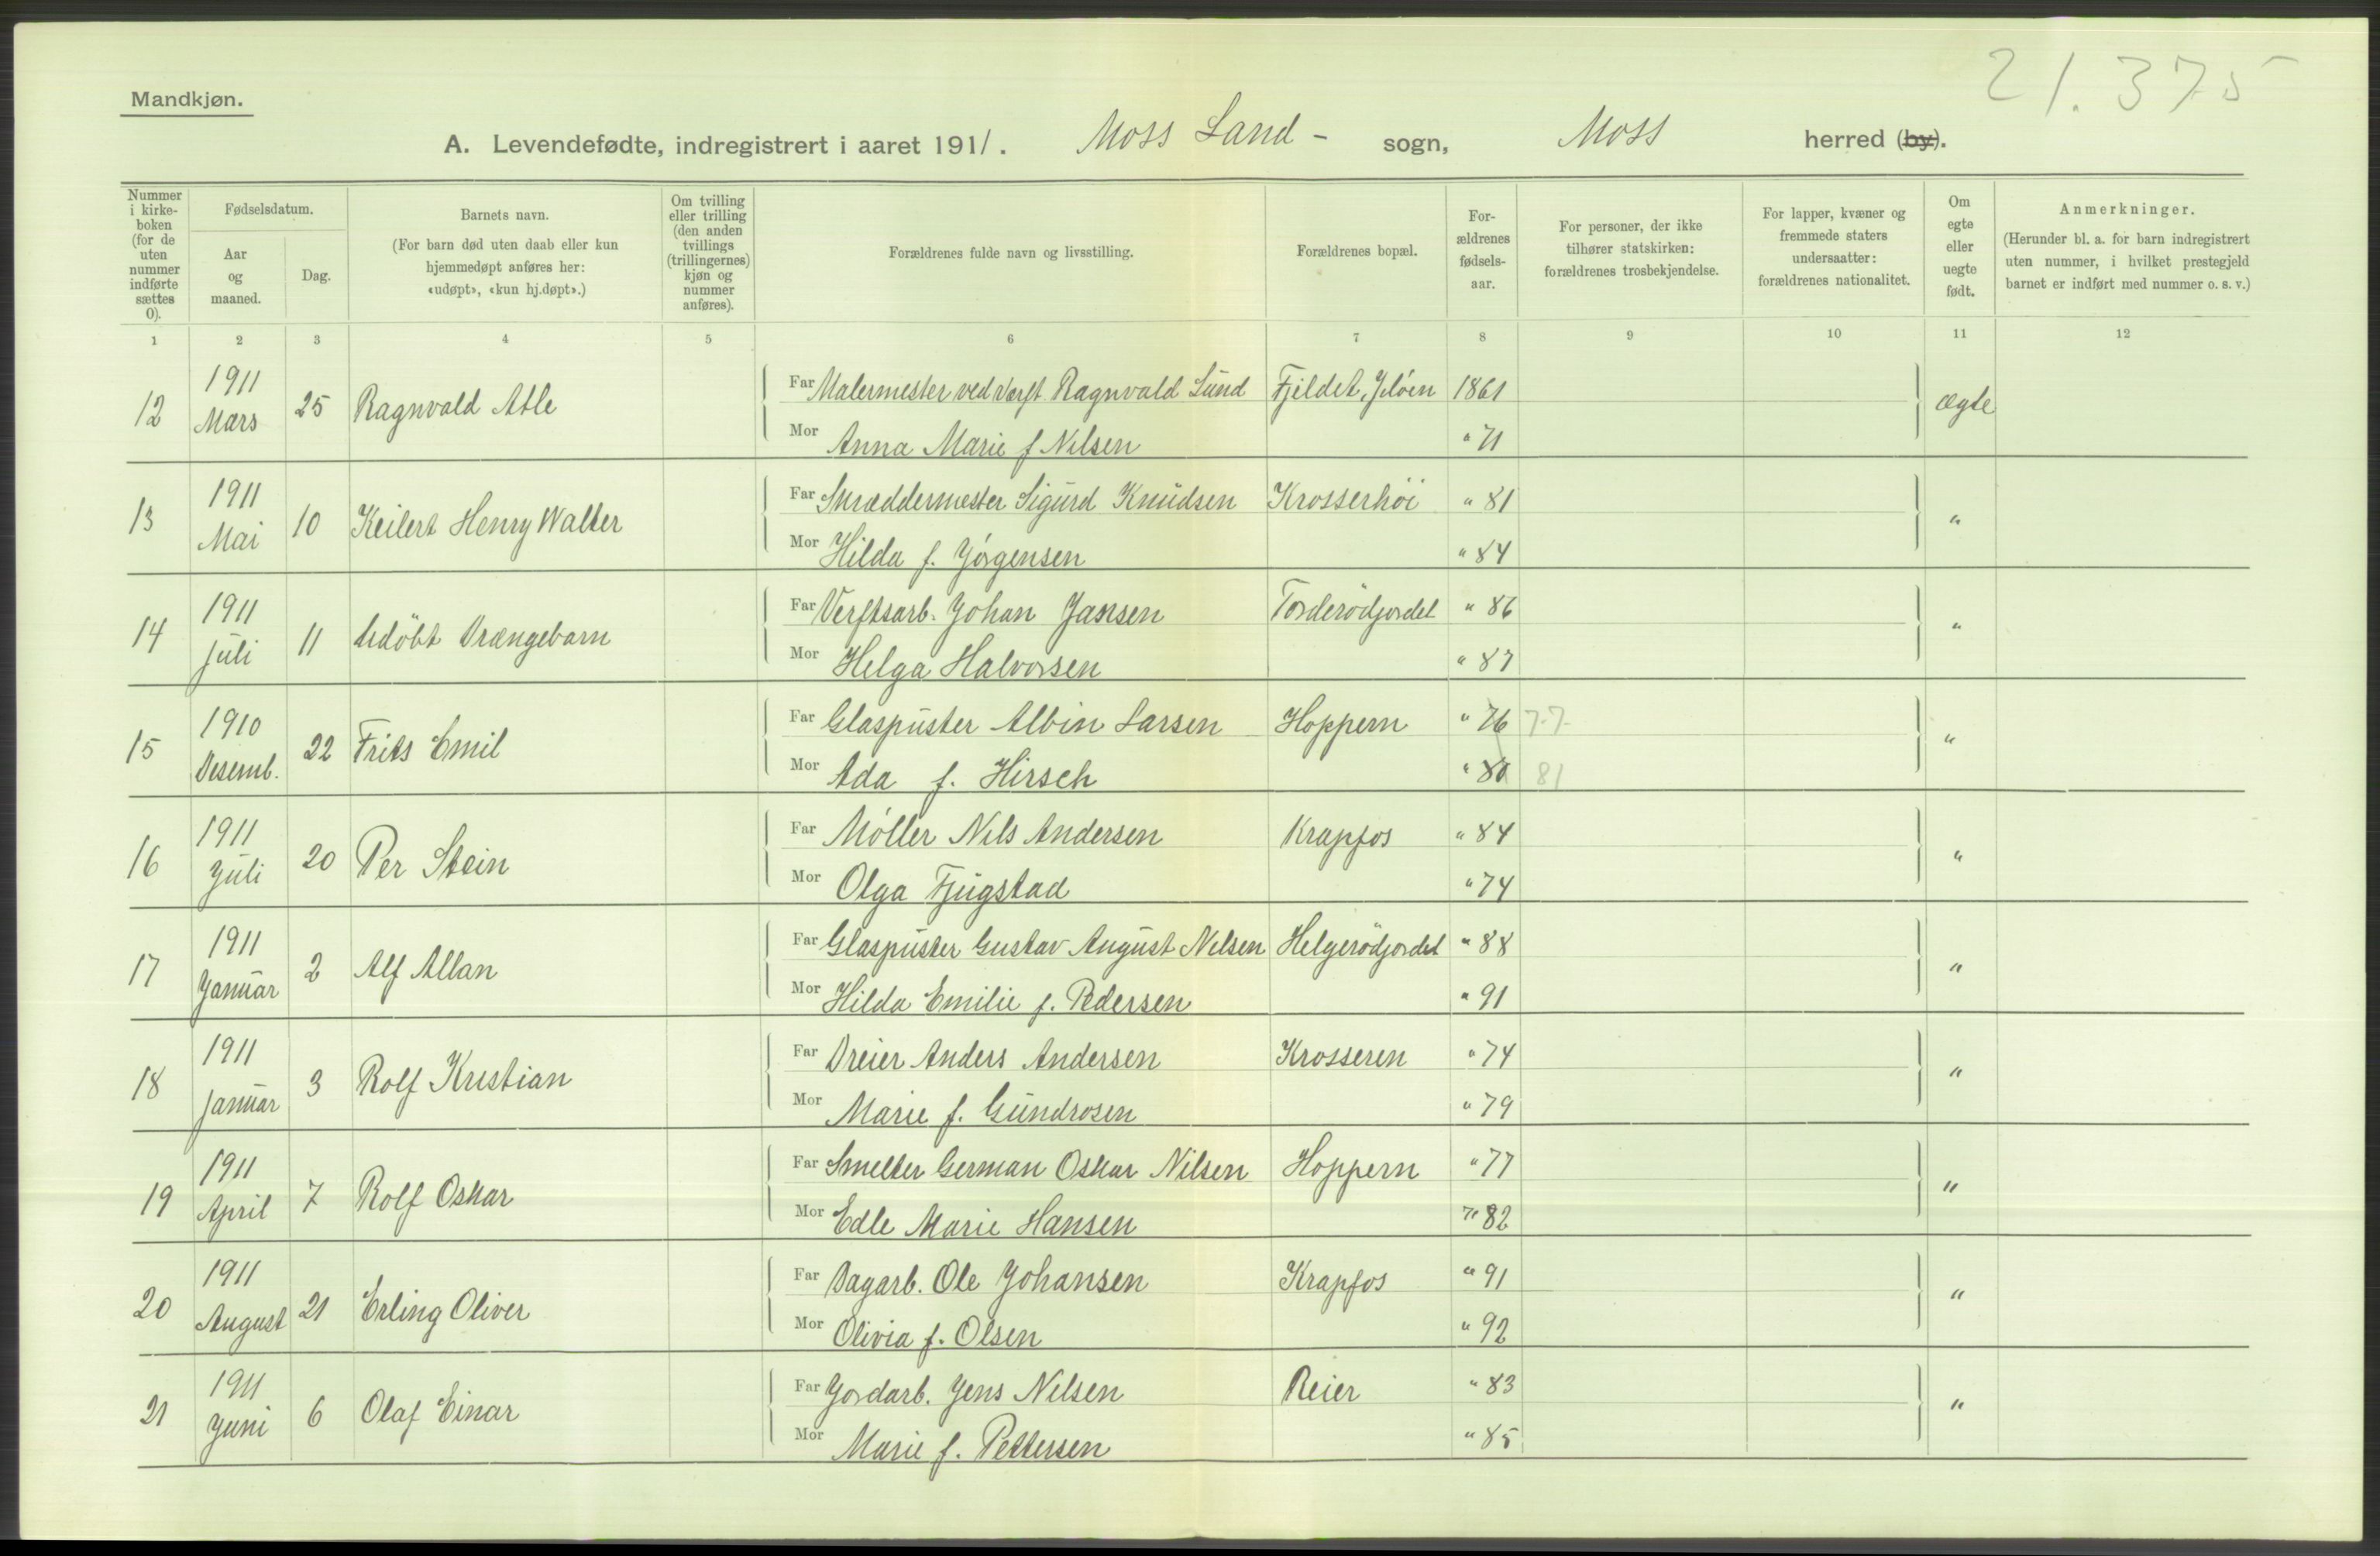 21.375
Mandkjøn.
A. Levendefødte, indregistrert i aaret 1911. Moss Land - sogn, Moss herred (by).
Nummer i kirkeboken (for de uten nummer indførte sættes 0).
Fødselsdatum.
Aar og maaned.
Dag.
Barnets navn.
(For barn død uten daab eller kun hjemmedøpt anføres her: «udøpt», «kun hj.døpt».)
Om tvilling eller trilling (den anden tvillings (trillingernes) kjøn og nummer anføres).
Forældrenes fulde navn og livsstilling.
Forældrenes bopæl.
Forældrenes fødselsaar.
For personer, der ikke tilhører statskirken: forældrenes trosbekjendelse.
For lapper, kvæner og fremmede staters undersaatter: forældrenes nationalitet.
Om egte eller uegte født.
Anmerkninger.
(Herunder bl. a. for barn indregistrert uten nummer, i hvilket prestegjeld barnet er indført med nummer o. s. v.)
1 2 3 4 5 6 7 8 9 10 11 12
12 1911 Mars 25 Ragnvald Atle Far Malermester ved værft Ragnvald Lund Fjeldet, Jeløen 1861 ægte
Mor Anna Marie f Nilsen " 71
13 1911 Mai 10 Keilert Henry Walter Far Skræddermester Sigurd Knudsen Krosserhöi " 81 "
Mor Hilda f. Jörgensen " 84
14 1911 Juli 11 Udöbt Drængebarn Far Verftsarb. Johan Jansen Torderödjordet " 86 "
Mor Helga Halvorsen " 87
15 1910 Desemb. 22 Frits Emil Far Glaspuster Albin Larsen Hoppern " 76 77 "
Mor Ada f. Hirsch " 80 81
16 1911 Juli 20 Per Stein Far Möller Nils Andersen Krapfos " 84 "
Mor Olga Fjugstad " 74
17 1911 Januar 2 Alf Allan Far Glaspuster Gustav August Nilsen Helgerödjordet " 88 "
Mor Hilda Emilie f. Pedersen " 91
18 1911 Januar 3 Rolf Kristian Far Dreier Anders Andersen Krosseren " 74 "
Mor Marie f. Gundrosen " 79
19 1911 April 7 Rolf Oskar Far Smelter German Oskar Nilsen Hoppern " 77 "
Mor Edle Marie Hansen " 82
20 1911 August 21 Erling Oliver Far Dagarb. Ole Johansen Krapfos " 91 "
Mor Olivia f. Olsen " 92
21 1911 Juni 6 Olaf Einar Far Jordarb. Jens Nilsen Reier " 83 "
Mor Marie f. Pettersen " 85